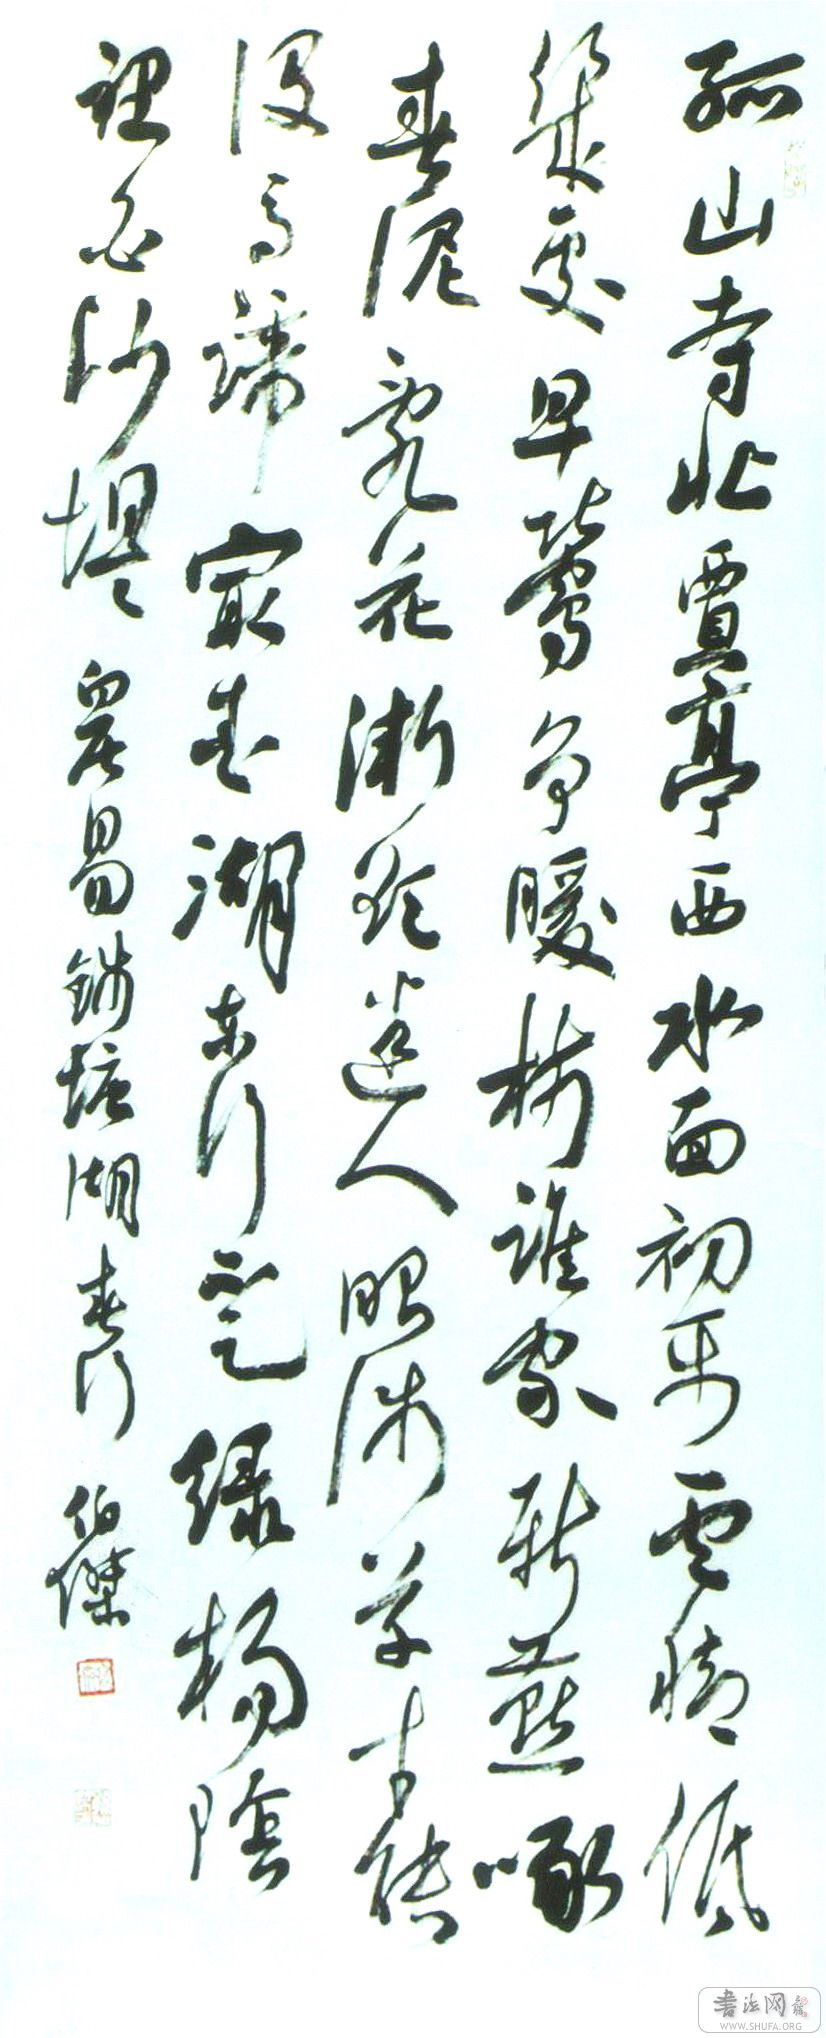 孤山寺北賈亭西水面初平雲腳低
幾處早鶯爭暖樹誰家新燕啄
春泥亂花漸欲迷人眼淺草才能
沒馬蹄最愛湖東行不足綠楊陰
裡白沙堤 居易錢塘湖春行 伯傑
書法网
WWW.SHUFA.ORG